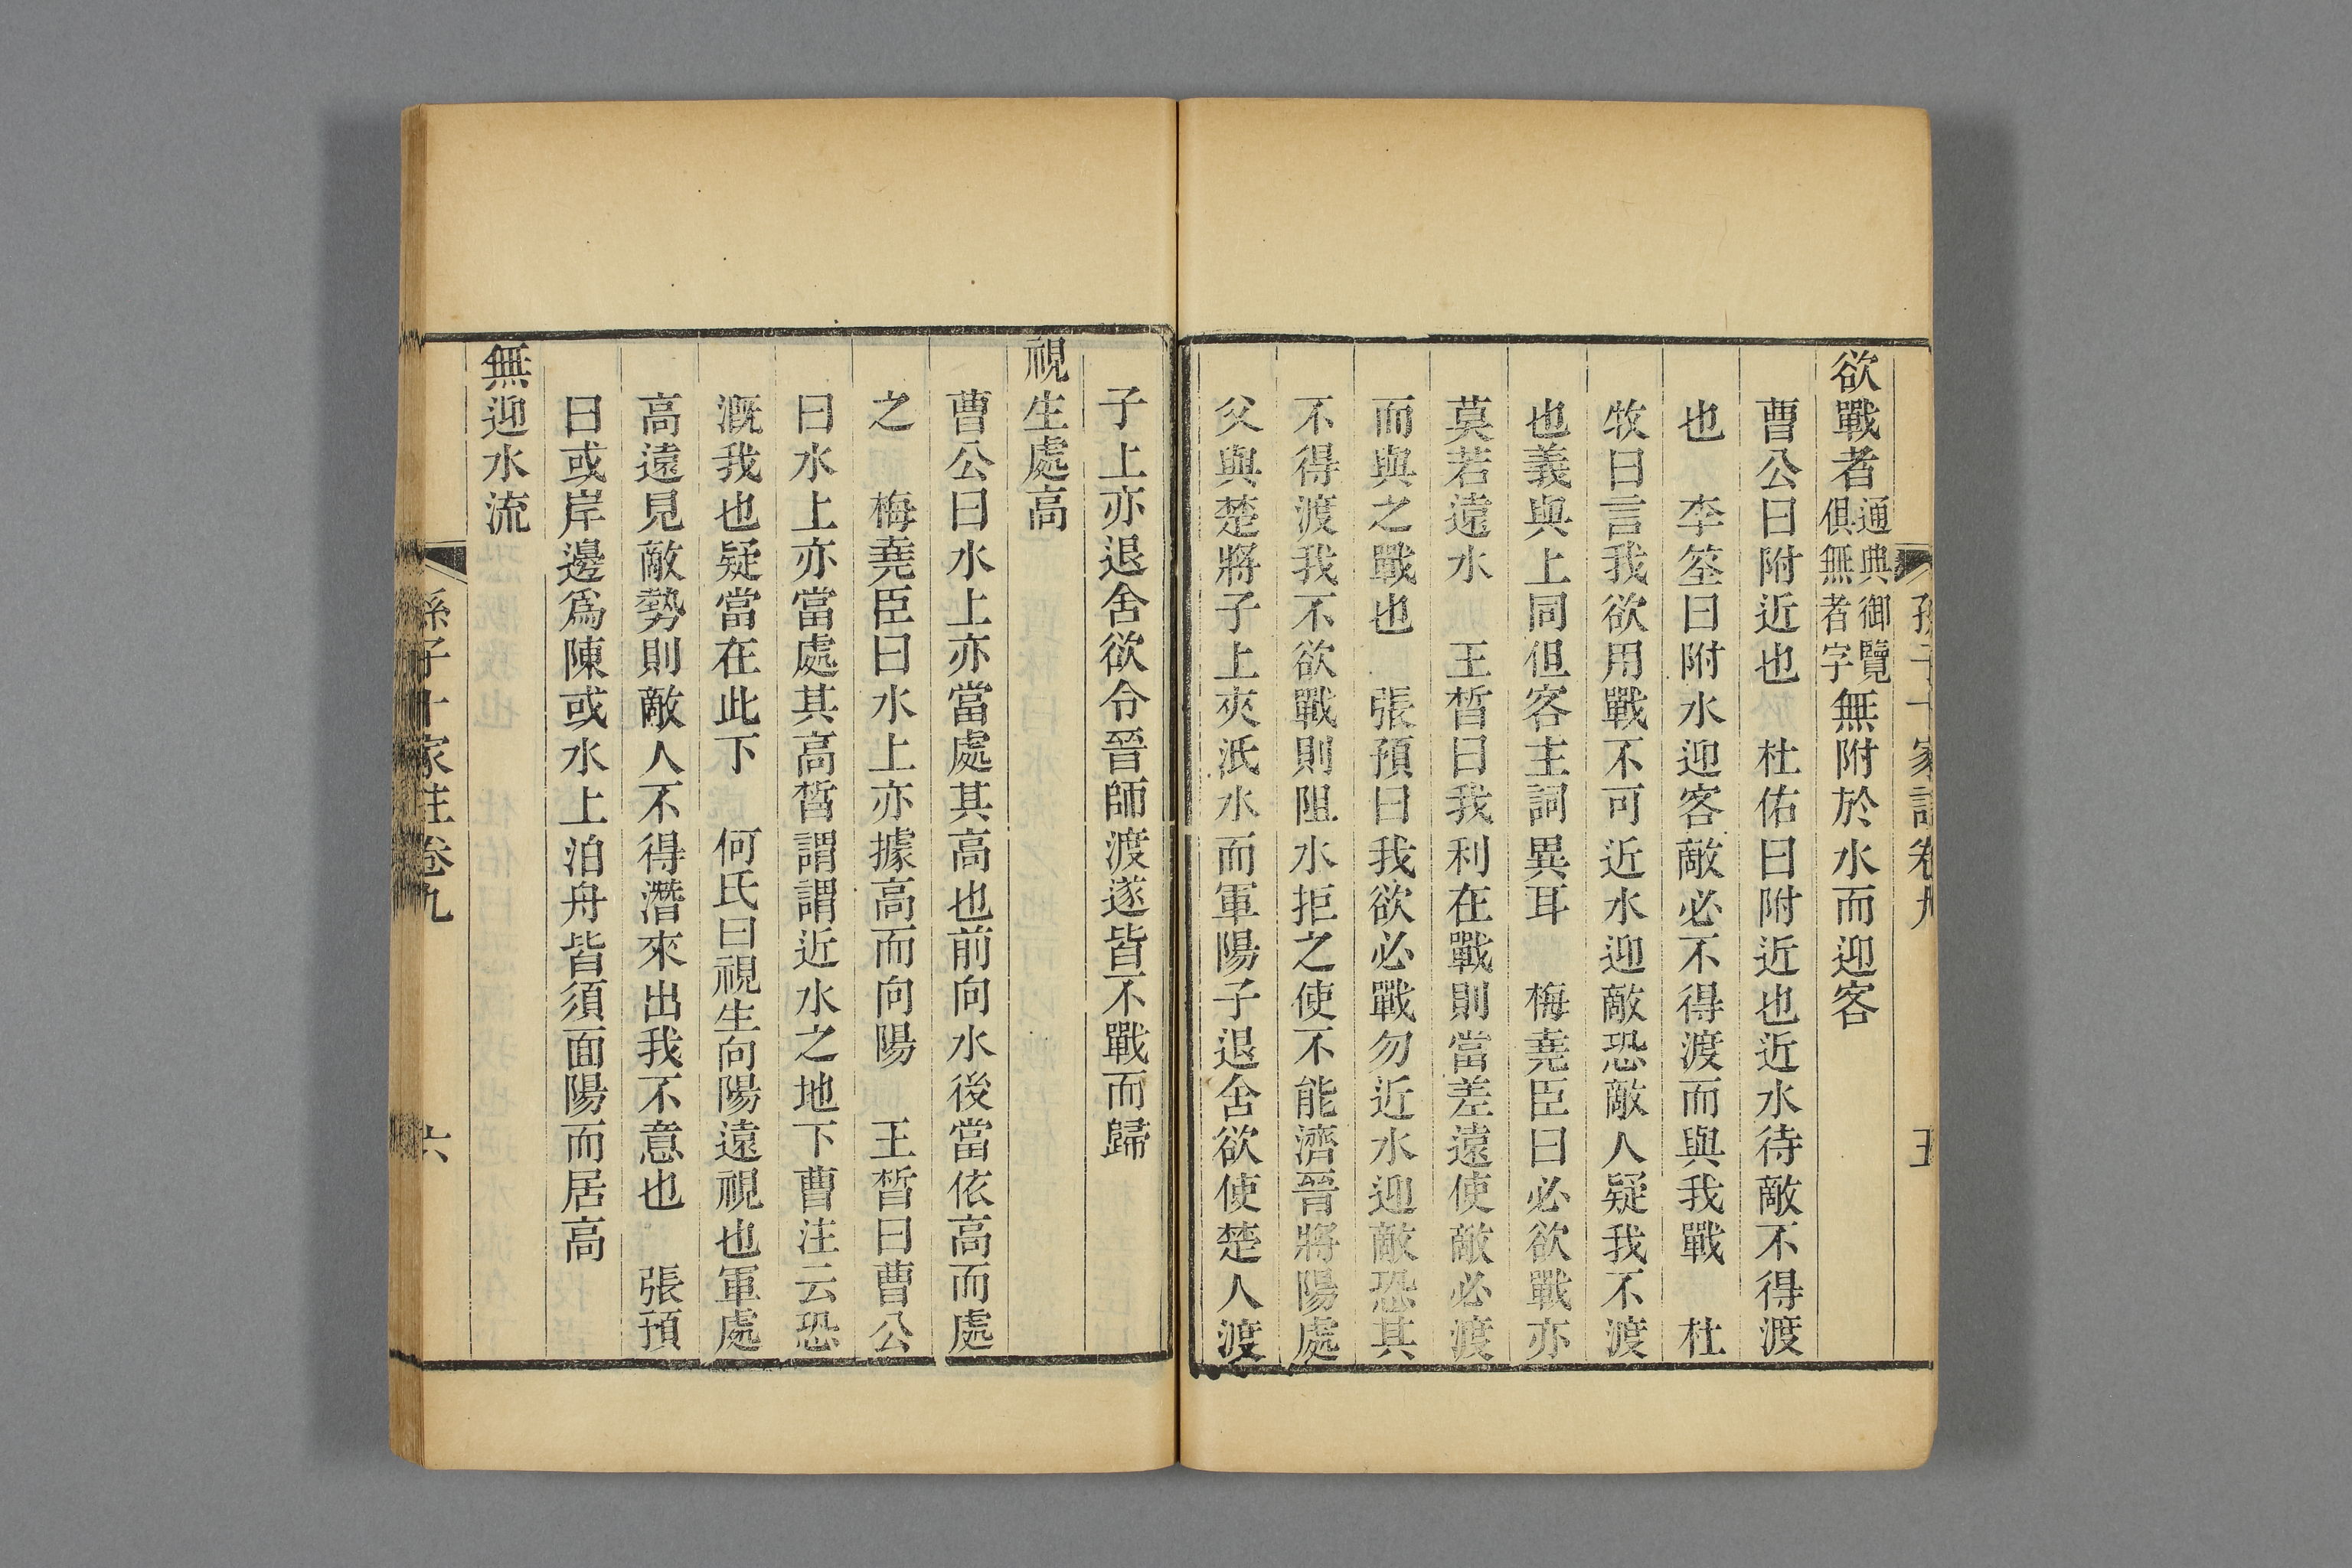 欲戰者通典御覽俱無者字無附於水而迎客
曹公曰附近也　杜佑曰附近也近水待敵不得渡
也　李筌曰附水迎客敵必不得渡而與我戰　杜
牧曰言我欲用戰不可近水迎敵恐敵人疑我不渡
也義與上同但客主詞異耳　梅堯臣曰必欲戰亦
莫若遠水　王晳曰我利在戰則當差遠使敵必渡
而與之戰也　張預曰我欲必戰勿近水迎敵恐其
不得渡我不欲戰則阻水拒之使不能濟晉將陽處
父與楚將子上夾泜水而軍陽子退舍欲使楚人渡
子上亦退舍欲令晉師渡遂皆不戰而歸
視生處高
曹公曰水上亦當處其高也前向水後當依高而處
之　梅堯臣曰水上亦據高而向陽　王晳曰曹公
曰水上亦當處其高晳謂謂近水之地下曹注云恐
溉我也疑當在此下　何氏曰視生向陽遠視也軍處
高遠見敵勢則敵人不得潛來出我不意也　張預
曰或岸邊爲陳或水上泊舟皆須面陽而居高
無迎水流
孫子十家註卷九
六